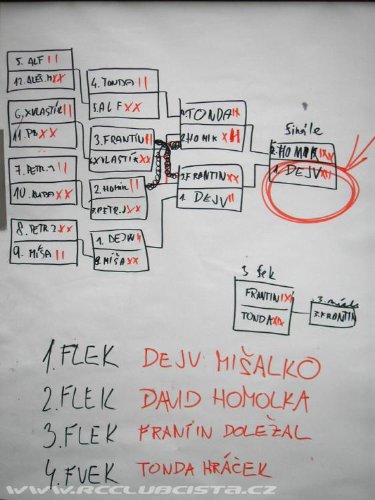 5. ALF II
12. ALEŠ M XX
6. XVLASTÍK II
11. PB XX
7. PETR.J II
10. KUBA XX
8. PETR 2 XX
9. MÍŠA II
4. TONDA II
5. ALF XX
3. FRANTÍN II
6. XVLASTÍK XX
2. HOMIK II
7. PETR.J XX
1. DEJV II
8. MÍŠA XX
TONDA
2. HOMIK
3. FRANTIN XX
1. DEJV II
finále
HOMIK
1. DEJV
3. flek
FRANTIN
TONDA
3. FRANTIN
1. FLEK DEJV MIŠALKO
2. FLEK DAVID HOMOLKA
3. FLEK FRANTIN DOLEŽAL
4. FVEK TONDA HRÁČEK
WWW.RCCLUBCISTA.CZ